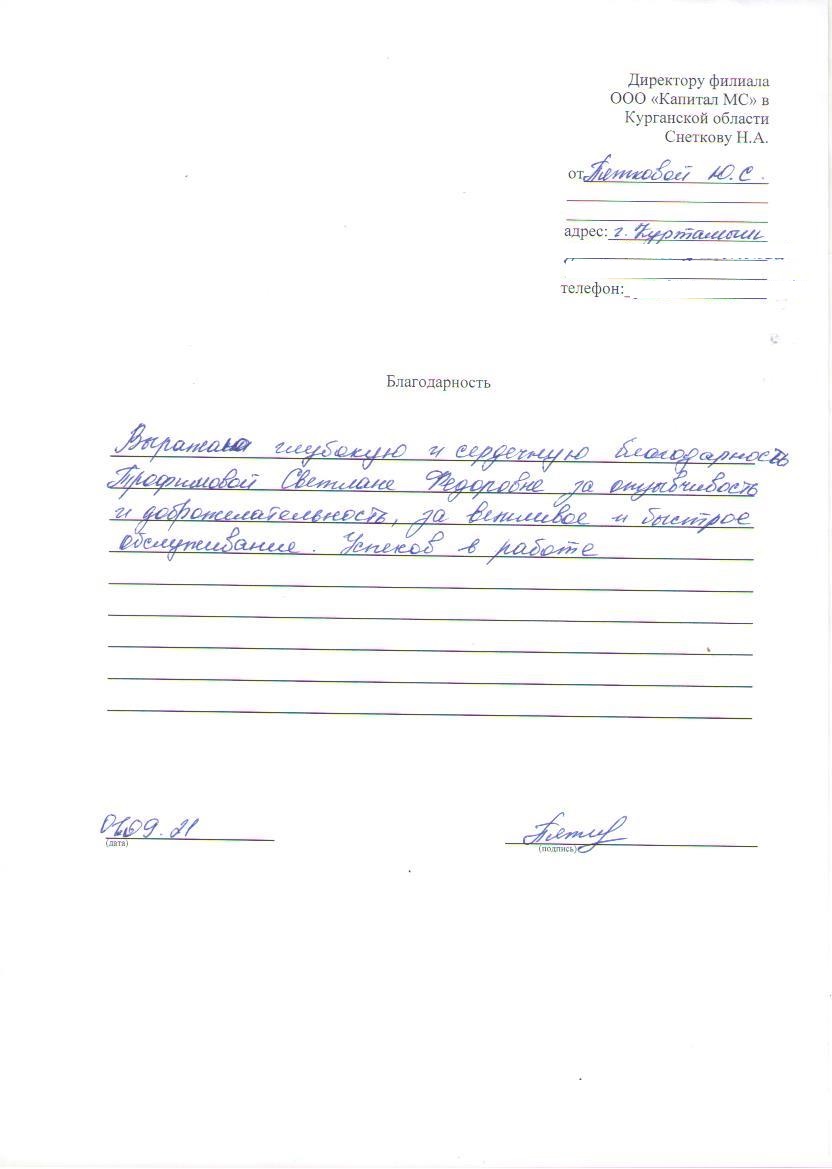 Директору филиала
ООО «Капитал МС» в
Курганской области
Снеткову Н.А.
от Пятковой Ю.С.
адрес: г. Куртамыш
телефон:
Благодарность
Выражаю глубокую и сердечную благодарность
Трофимовой Светлане Федоровне за отзывчивость
и доброжелательность, за вежливое и быстрое
обслуживание. Успехов в работе
09.21
(дата)
(подпись)